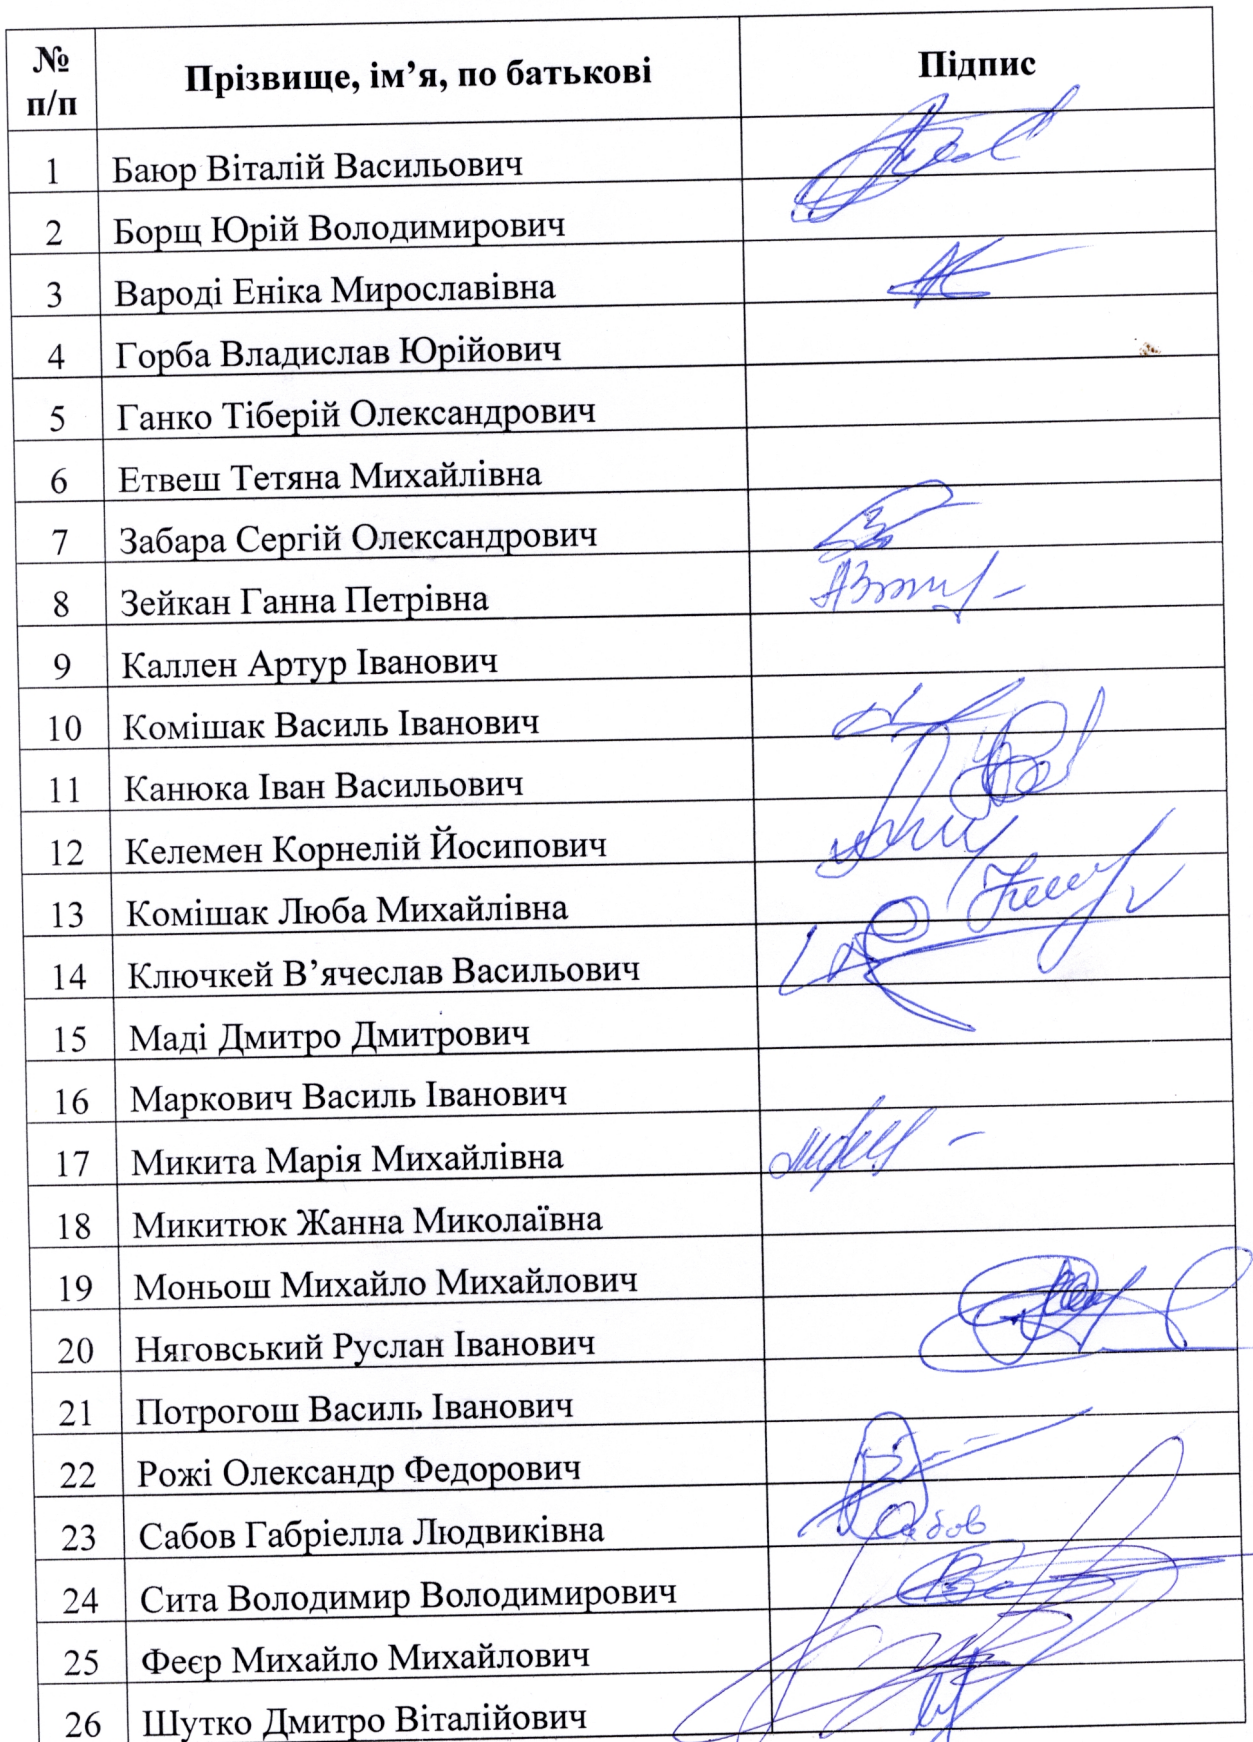 № п/п Прізвище, ім’я, по батькові Підпис
1 Баюр Віталій Васильович
2 Борщ Юрій Володимирович
3 Вароді Еніка Мирославівна
4 Горба Владислав Юрійович
5 Ганко Тіберій Олександрович
6 Етвеш Тетяна Михайлівна
7 Забара Сергій Олександрович
8 Зейкан Ганна Петрівна
9 Каллен Артур Іванович
10 Комішак Василь Іванович
11 Канюка Іван Васильович
12 Келемен Корнелій Йосипович
13 Комішак Люба Михайлівна
14 Ключкей В’ячеслав Васильович
15 Маді Дмитро Дмитрович
16 Маркович Василь Іванович
17 Микита Марія Михайлівна
18 Микитюк Жанна Миколаївна
19 Моньош Михайло Михайлович
20 Няговський Руслан Іванович
21 Потрогош Василь Іванович
22 Рожі Олександр Федорович
23 Сабов Габріелла Людвиківна Сабов
24 Сита Володимир Володимирович
25 Феєр Михайло Михайлович
26 Шутко Дмитро Віталійович